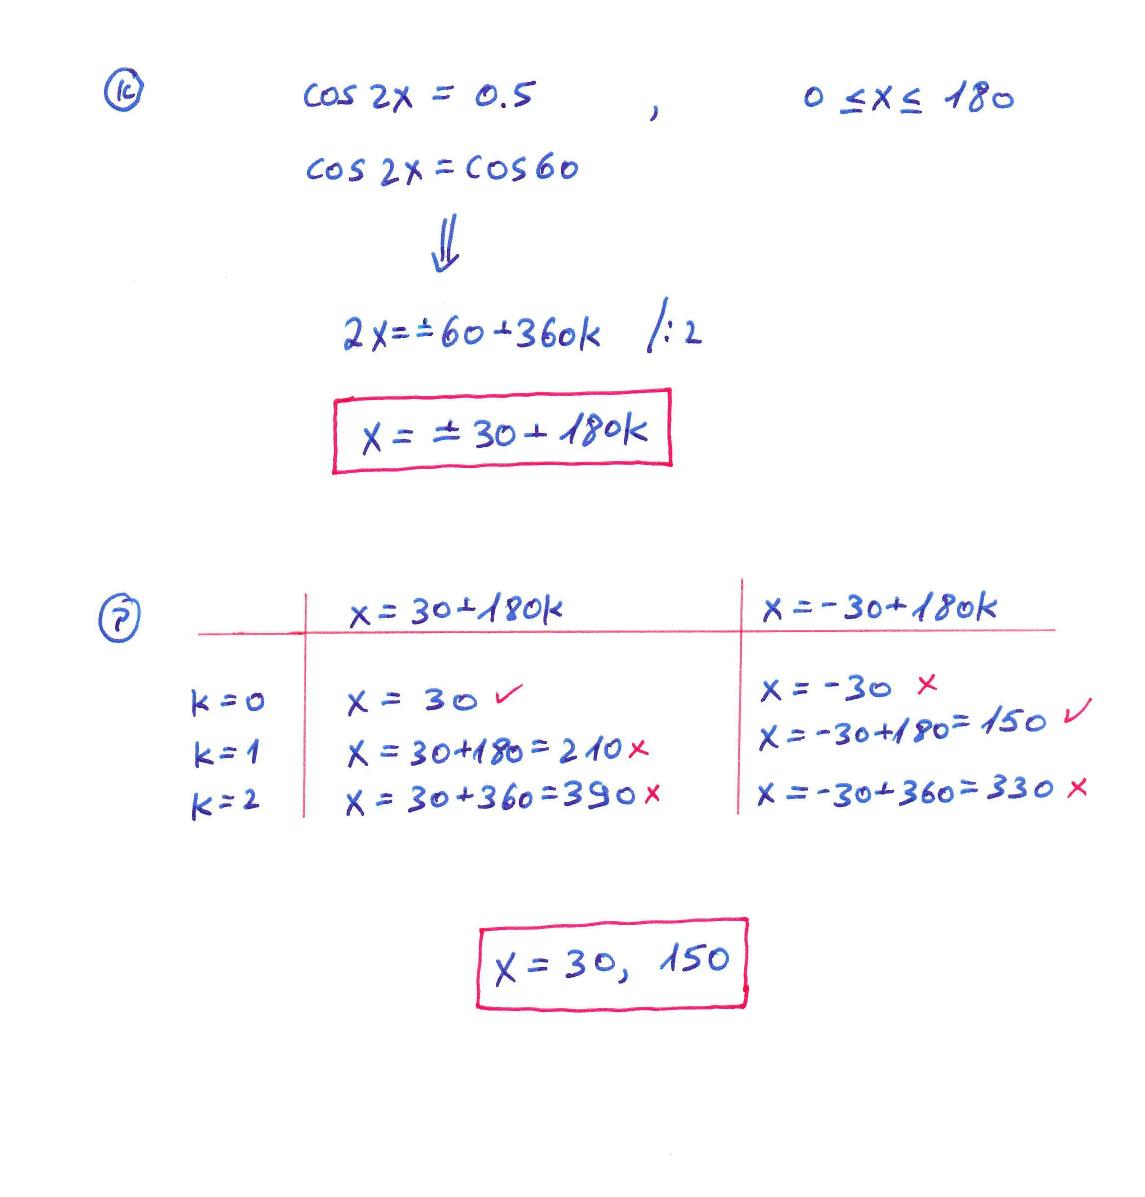 א cos 2x = 0.5 , 0 ≤ x ≤ 180
cos 2x = cos 60
⇓
2x = ±60 + 360k /: 2
x = ± 30 + 180k
x = 30 + 180k x = -30 + 180k
k = 0 x = 30 ✓ x = -30 ×
k = 1 x = 30+180 = 210 × x = -30+180 = 150 ✓
k = 2 x = 30+360 = 390 × x = -30+360 = 330 ×
x = 30, 150